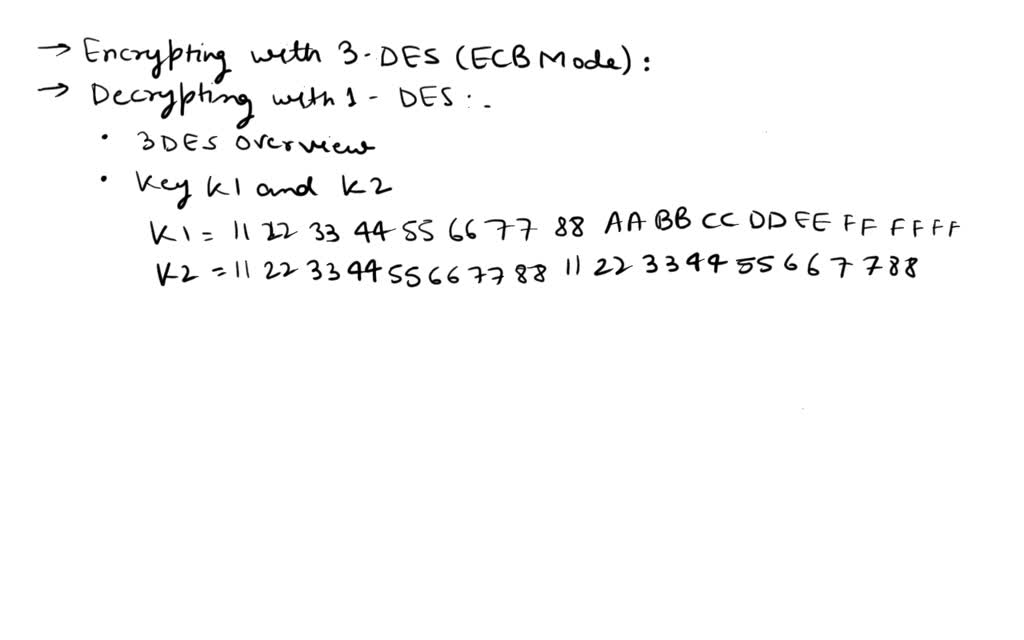 → Encrypting with 3-DES (ECB Mode):
→ Decrypting with 1 - DES:.
• 3DES overview
• Key K1 and K2
K1 = 11 22 33 44 55 66 77 88 AA BB CC DD EE FF FF FF
K2 = 11 22 33 44 55 66 77 88 11 22 33 44 55 66 77 88